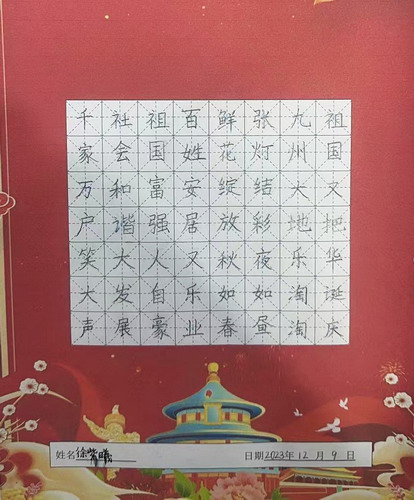 祖国又把华诞庆
九州大地乐淘淘
张灯结彩夜如昼
鲜花绽放秋如春
百姓安居又乐业
祖国富强人自豪
社会和谐大发展
千家万户笑大声
姓名徐紫曦 日期2023年12月9日